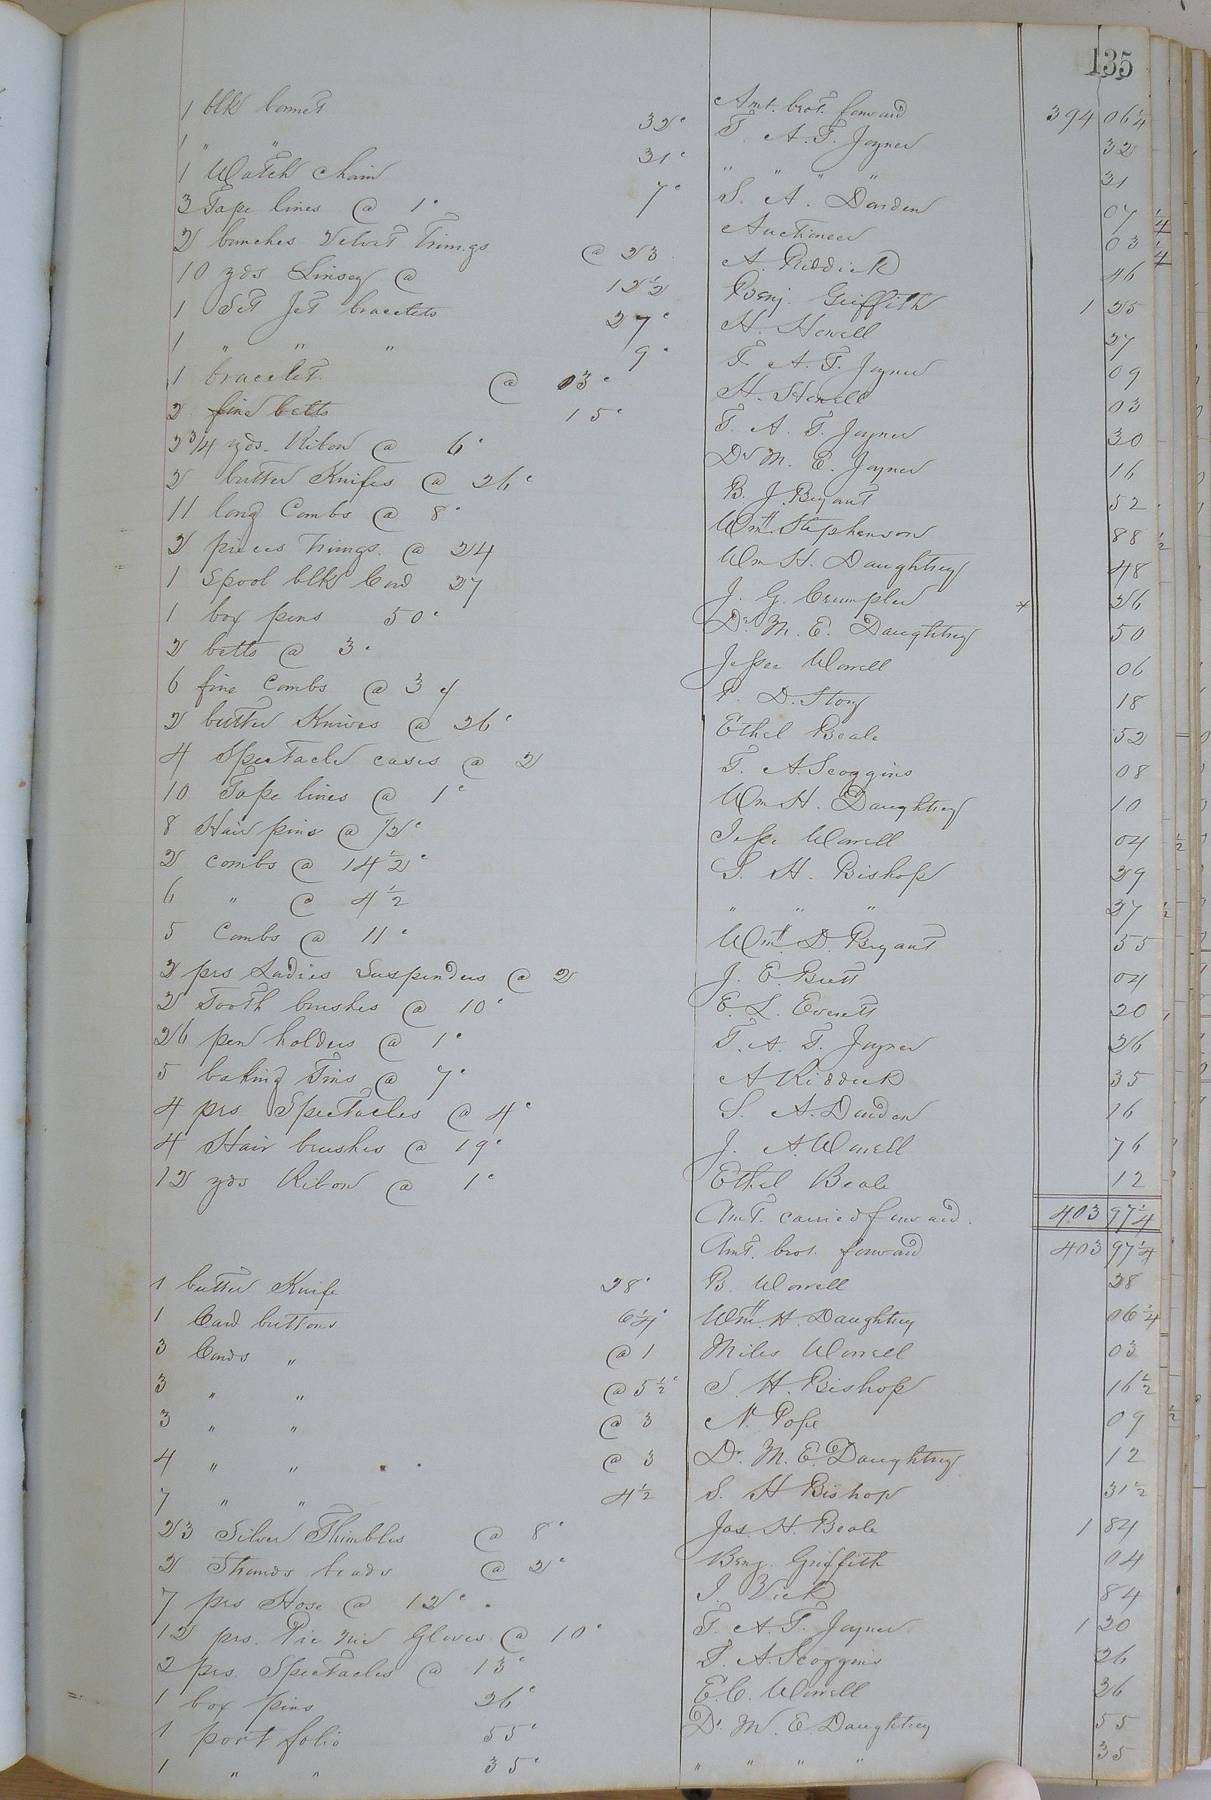 135
Amt. brot. forward 394 06 1/4
1 blk bonnet 32c T. A. T. Joyner 32
1 " " 31c " " " " 31
1 Watch chain 7c S. A. Darden 07
3 Tape lines @ 1c Auctioneer 03
2 bunches Velvet Trimgs @ 23 A. Riddick 46
10 yds Linsey @ 12 1/2 Benj. Griffith 1 25
1 Set Jet bracelets 27c H. Howell 27
1 " " " 9c T. A. T. Joyner 09
1 bracelet @ 03c H. Howell 03
2 fine belts 15c T. A. T. Joyner 30
2 3/4 yds. Ribon @ 6c Dr M. E. Joyner 16
2 butter Knifes @ 26c B. J. Bryant 52
11 long Combs @ 8c Wm. Stephenson 88
2 pieces Trimgs. @ 24 Wm H. Daughtrey 48
1 Spool blk Cord 27 J. G. Crumpler 26
1 box pens 50c Dr. M. E. Daughtrey 50
2 belts @ 3c Jesse Worrell 06
6 fine Combs @ 3 D. Story 18
2 butter Knives @ 26c Ethel Beale 52
4 Spectacle cases @ 2 T. A. Scoggins 08
10 Tape lines @ 1c Wm H. Daughtrey 10
8 Hair pins @ 1/2c Jesse Worrell 04
2 combs @ 14 1/2c S. H. Bishop 29
6 " @ 4 1/2 " " " 27 1/2
5 Combs @ 11c Wm D. Bryant 55
2 prs Ladies Suspenders @ 2 J. E. Britt 04
2 Tooth brushes @ 10c E. L. Everett 20
26 pen holders @ 1c T. A. T. Joyner 26
5 baking Tins @ 7c A Riddick 35
4 prs Spectacles @ 4c S. A. Darden 16
4 Hair brushes @ 19c J. A. Worrell 76
12 yds Ribon @ 1c Ethel Beale 12
Amt. carried forward. 403 97 1/4
Amt. brot. forward 403 97 1/4
1 butter Knife 28c B. Worrell 28
1 Card buttons 6 1/4c Wm. H. Daughtrey 06 1/4
3 Cards " @ 1 Miles Worrell 03
3 " " @ 5 1/2c S. H. Bishop 16 1/2
3 " " @ 3 N. Pope 09
4 " " @ 3 Dr. M. E. Daughtrey 12
7 " " 4 1/2 S. H Bishop 31 1/2
23 Silver Thimbles @ 8c Jas. H. Beale 1 84
2 Strands beads @ 2c Benj. Griffith 04
7 prs Hose @ 12c J. Vick 84
12 prs. Pic Nic Gloves @ 10c T. A. T. Joyner 1 20
2 prs. Spectacles @ 13c T. A. Scoggins 26
1 box pins 26c E. C. Worrell 26
1 port folio 55c Dr. M. E Daughtrey 55
1 " " 35c " " " " 35